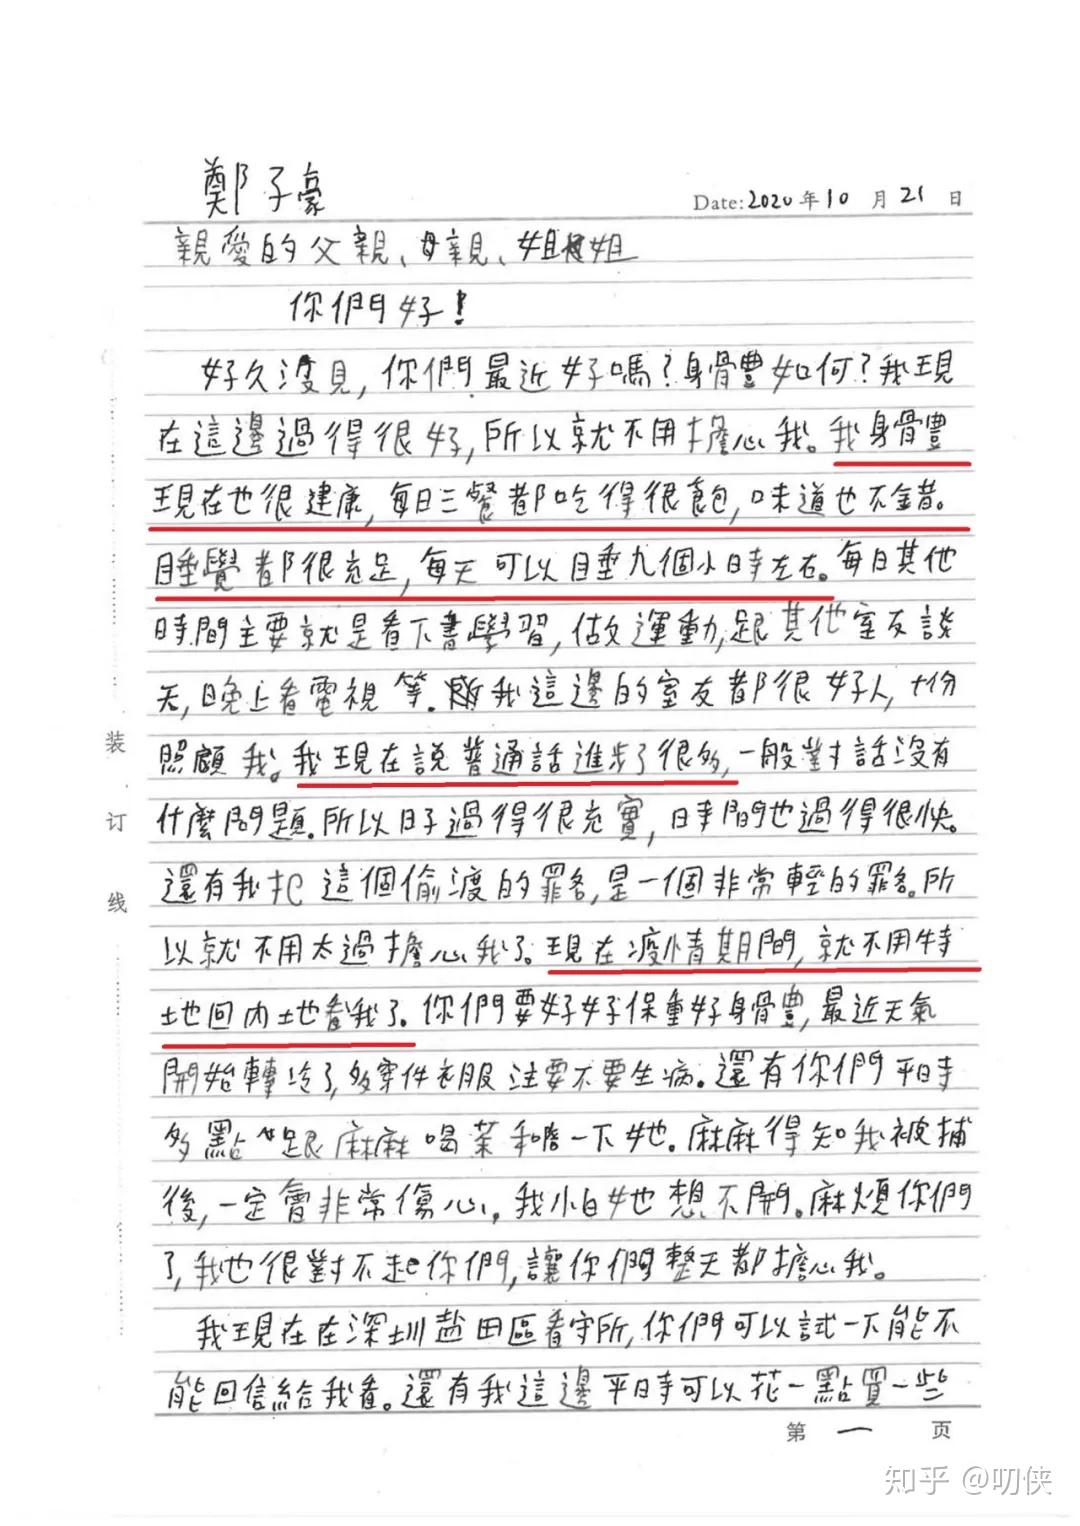 鄭子豪
Date: 2020 年 10 月 21 日
親愛的父親、母親、姐姐
你們好!
好久沒見,你們最近好嗎?身體如何?我現
在這邊過得很好,所以就不用擔心我。我身體
現在也很健康,每日三餐都吃得很飽,味道也不錯。
睡覺都很充足,每天可以睡九個小時左右。每日其他
時間主要就是看下書學習,做運動,跟其他室友談
天,晚上看電視等。我這邊的室友都很好人,十份
照顧我。我現在說普通話進步了很多,一般對話沒有
什麼問題。所以日子過得很充實,時間也過得很快。
還有我犯這個偷渡的罪名,是一個非常輕的罪名。所
以就不用太過擔心我了。現在疫情期間,就不用特
地回內地看我了。你們要好好保重好身體,最近天氣
開始轉冷了,多穿件衣服注要不要生病。還有你們平時
多點跟麻麻喝茶和噡一下她。麻麻得知我被捕
後,一定會非常傷心,我怕她想不開。麻煩你們
了,我也很對不起你們,讓你們整天都擔心我。
我現在在深圳盐田區看守所,你們可以試一下能不
能回信給我看。還有我這邊平時可以花一點買一些
装
订
线
第 一 页
知乎 @叨侠